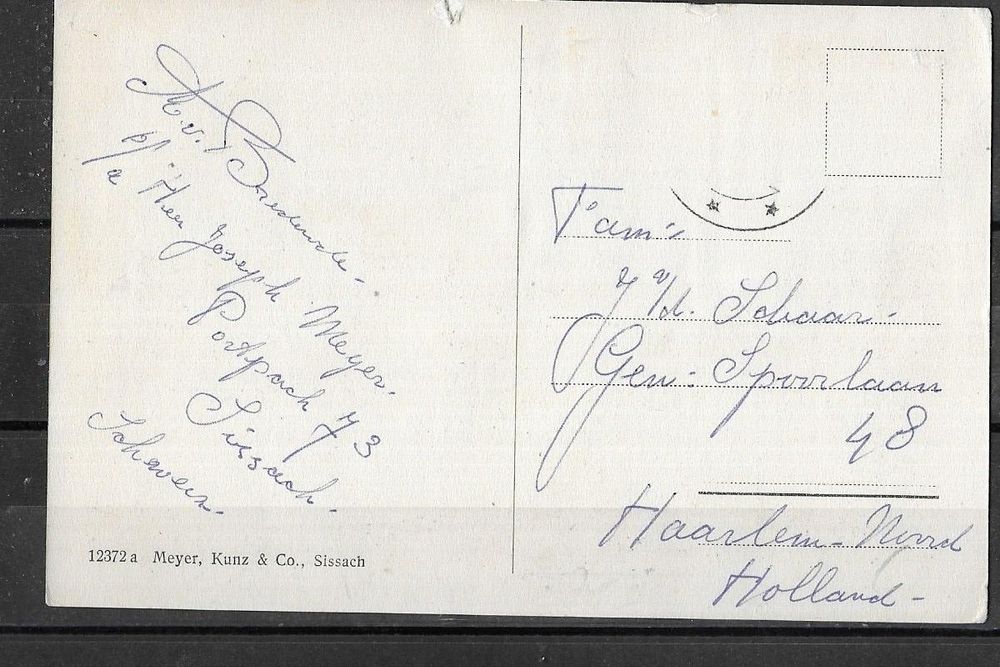 A. v. Brederode-
p/a Heer Joseph Meyer.
Postpach 73
Sissach.
Schweiz.
12372 a Meyer, Kunz & Co., Sissach
Fam:
J v/d. Schaar.
Gen. Spoorlaan
48
Haarlem-Noord
Holland-